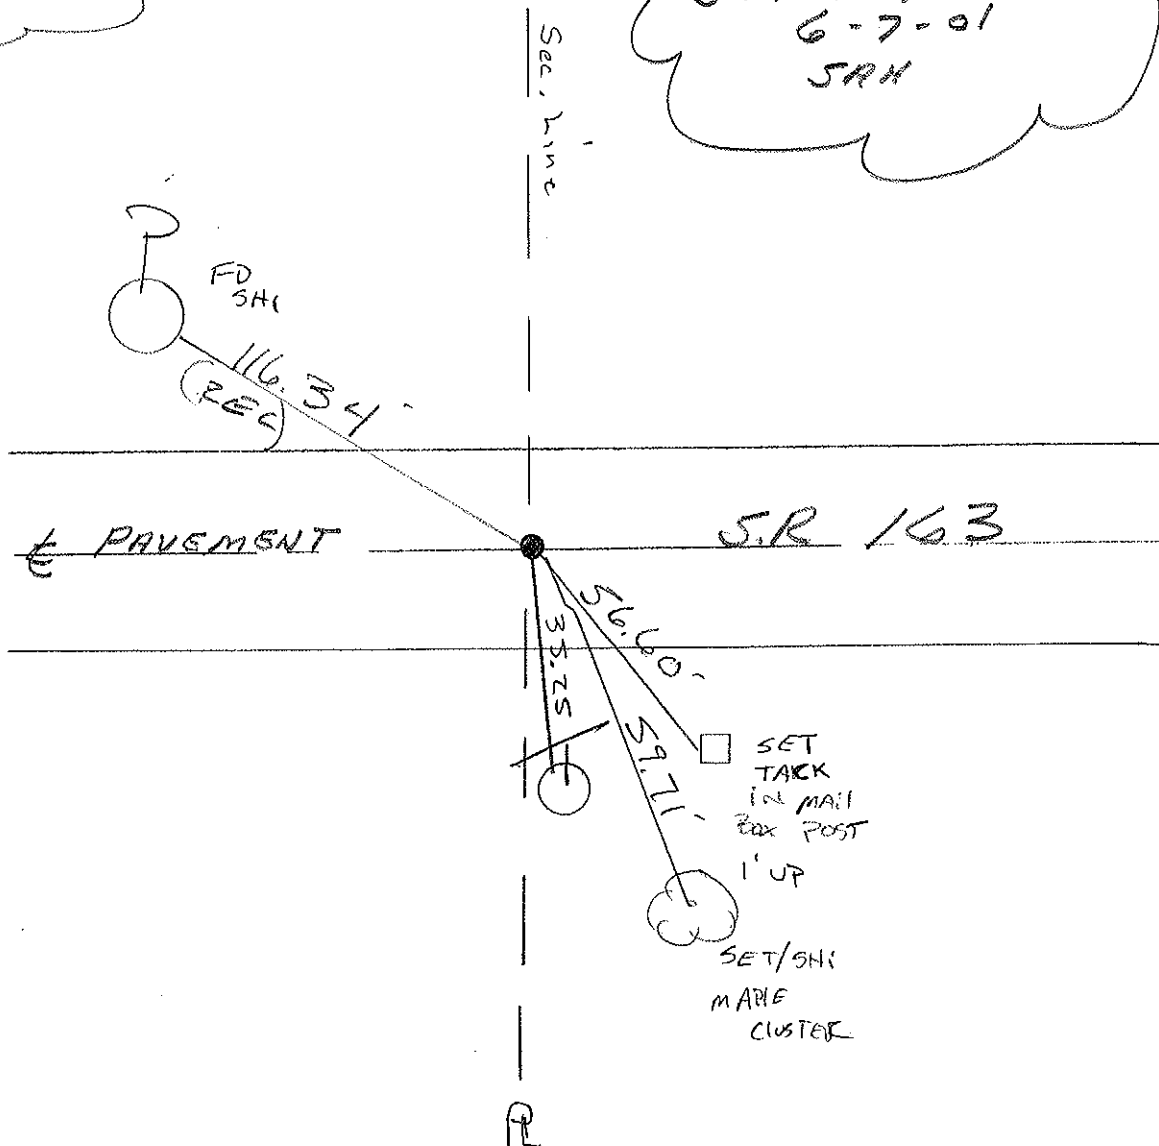 6-7-01
SRH
Sec. Line
FD
SHI
116.34'
(REC)
℄ PAVEMENT
S.R 163
56.60'
35.25
59.71'
SET
TACK
IN MAIL
BOX POST
1' UP
SET/SHI
MAPLE
CLUSTER
PL